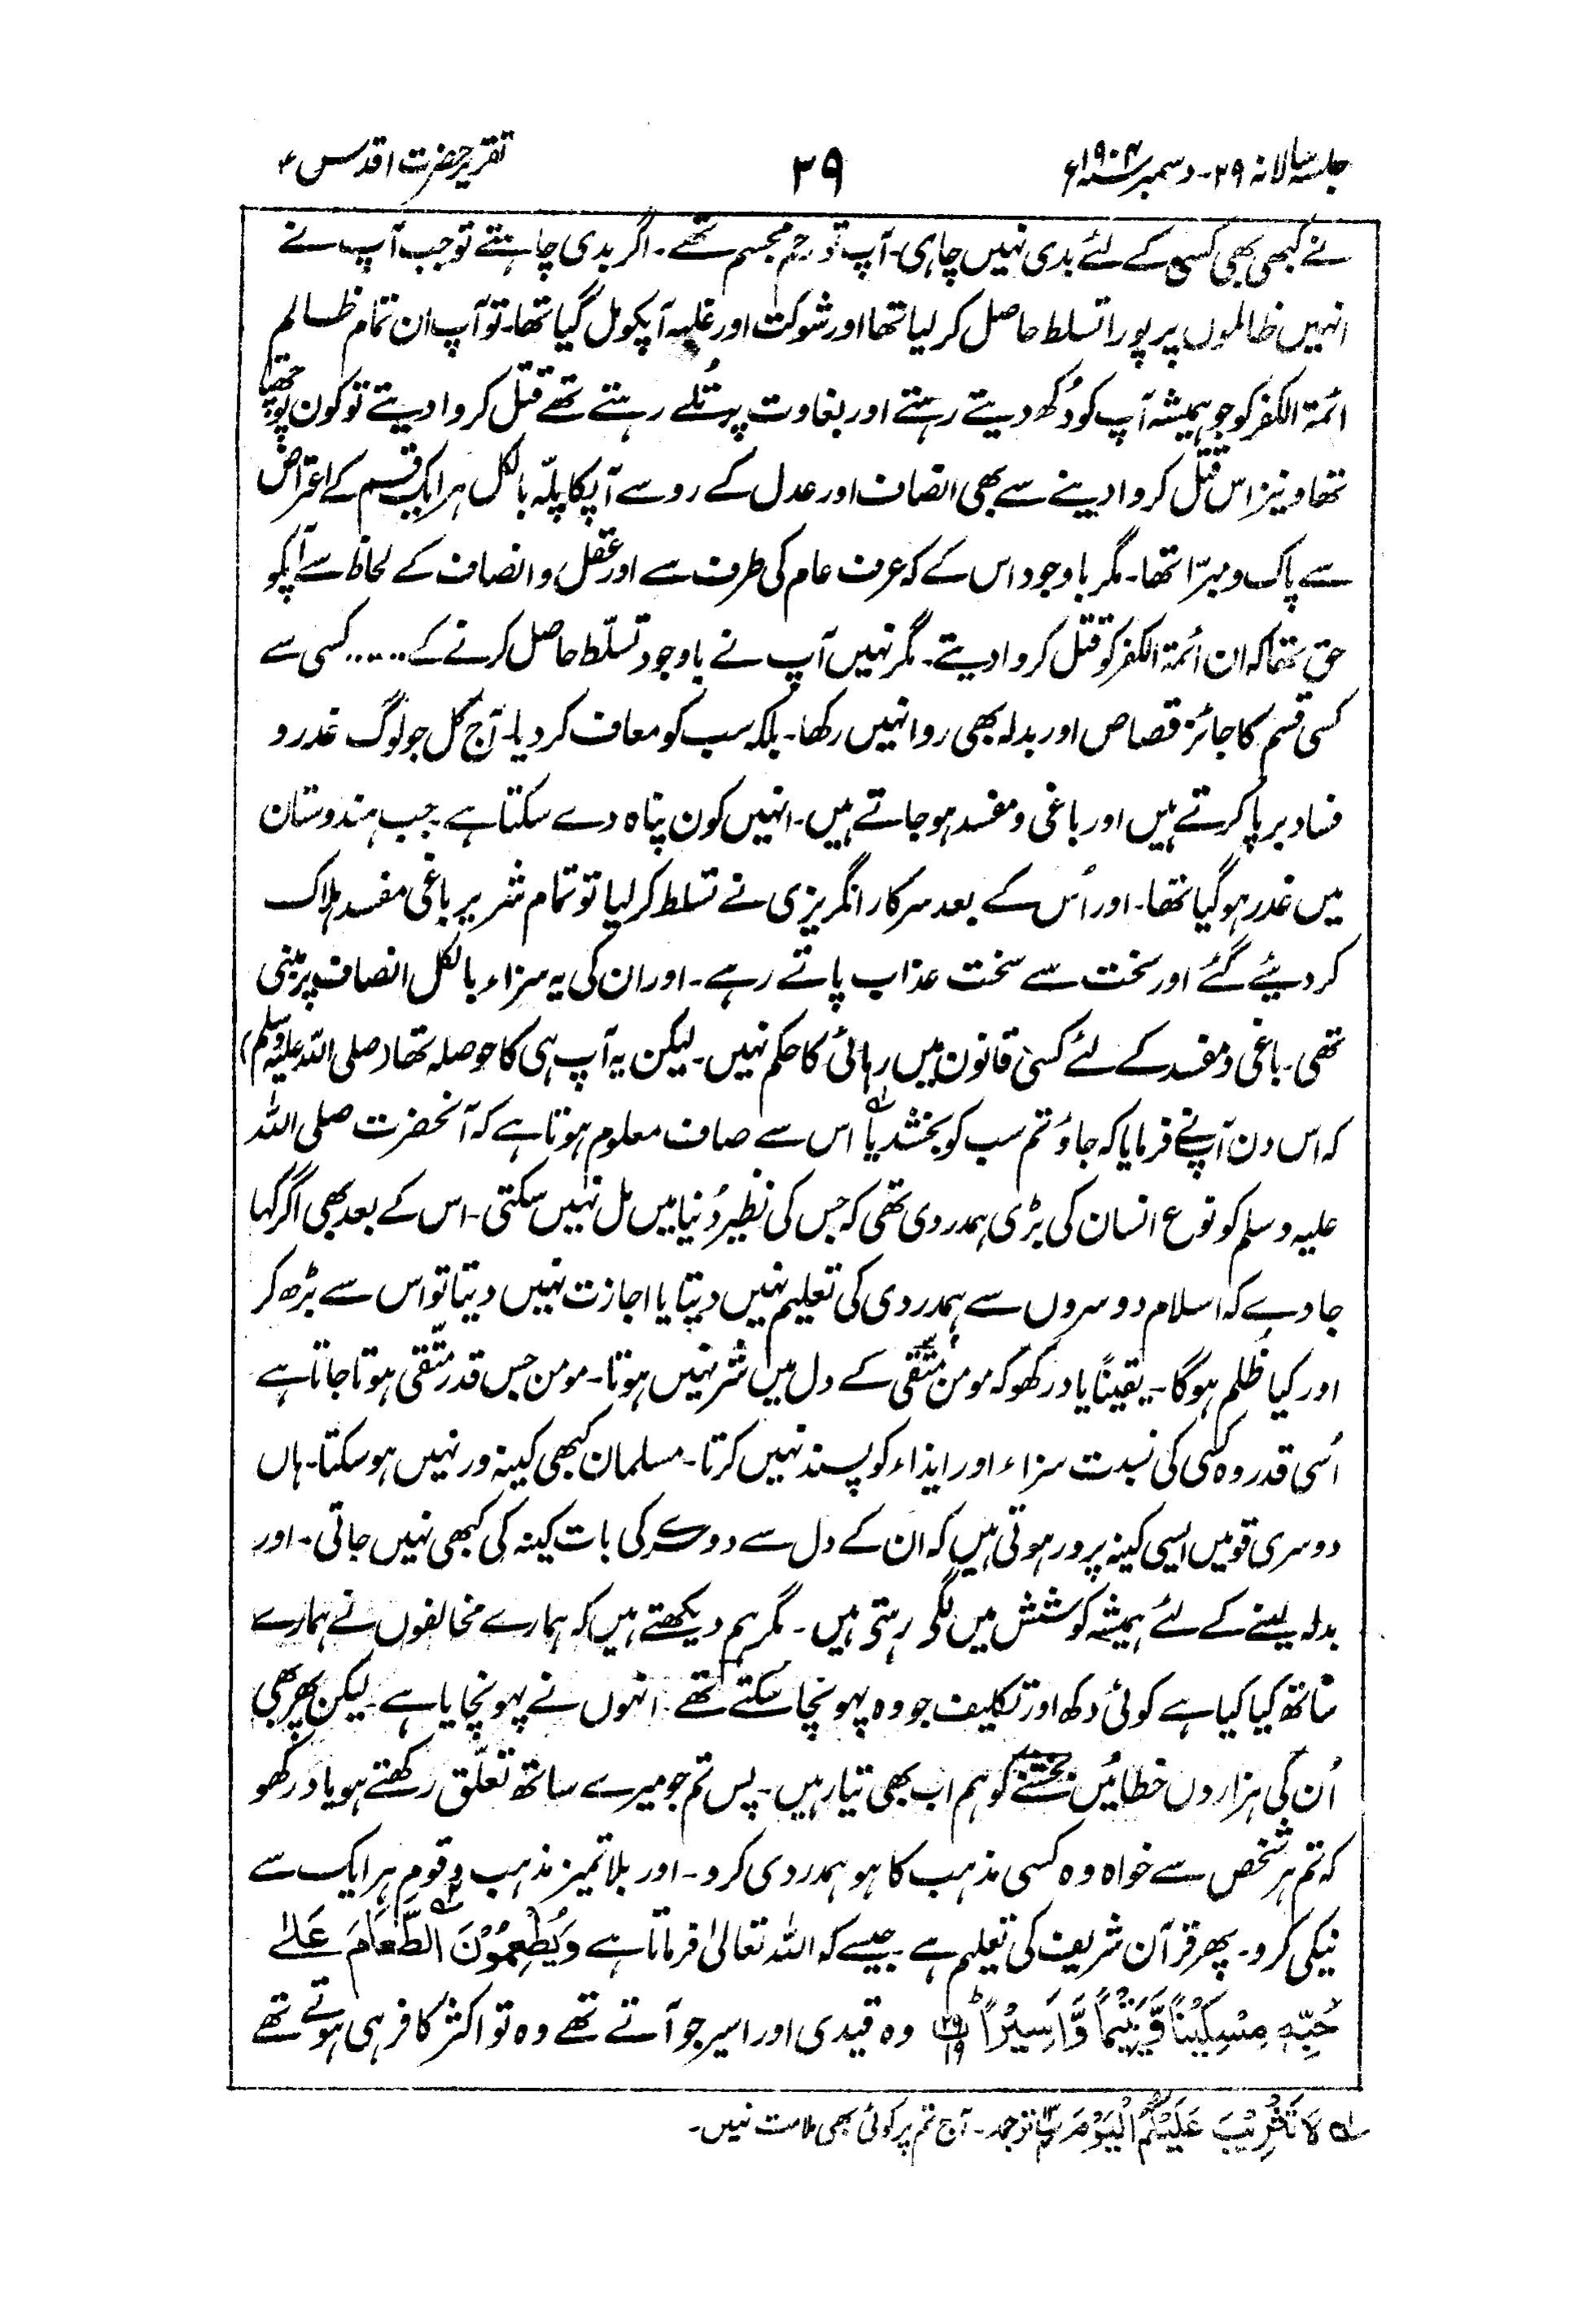 جلسہ سالانہ ۲۹۔دسمبر ۱۹۰۴ء
۲۹
تقریر حضرت اقدس ؑ
نے کبھی بھی کسی کے لئے بدی نہیں چاہی۔ آپ تو رحم مجسم تھے۔ اگر بدی چاہتے تو جب آپ نے
انہیں ظالموں پر پورا تسلط حاصل کر لیا تھا اور شوکت اور غلبہ آپکو مل گیا تھا۔ تو آپ ان تمام ظالم
ائمۃ الکفر کو جو ہمیشہ آپ کو دُکھ دیتے رہتے اور بغاوت پر تُلے رہتے تھے قتل کروا دیتے تو کون پوچھتا
تھا و نیز اس قتل کروا دینے سے بھی انصاف اور عدل کے رو سے آپکا پلّہ بالکل ہر ایک قسم کے اعتراض
سے پاک و مبرّا تھا۔ مگر باوجود اس کے کہ عرف عام کی طرف سے اور عقل و انصاف کے لحاظ سے آپکو
حق تھا کہ ان أئمۃ الکفر کو قتل کروا دیتے۔ مگر نہیں آپ نے باوجود تسلّط حاصل کرنے کے ..... کسی سے
کسی قسم کا جائز قصاص اور بدلہ بھی روا نہیں رکھا۔ بلکہ سب کو معاف کر دیا۔ آج کل جو لوگ غدر و
فساد برپا کرتے ہیں اور باغی و مفسد ہو جاتے ہیں۔ انہیں کون پناہ دے سکتا ہے۔ جب ہندوستان
میں غدر ہو گیا تھا۔ اور اُس کے بعد سرکار انگریزی نے تسلط کر لیا تو تمام شریر باغی مفسد ہلاک
کر دیئے گئے اور سخت سے سخت عذاب پاتے رہے۔ اور ان کی یہ سزاء بالکل انصاف پر مبنی
تھی۔ باغی و مفسد کے لئے کسی قانون میں رہائی کا حکم نہیں۔ لیکن یہ آپ ہی کا حوصلہ تھا (صلی اللہ علیہ وسلم)
کہ اس دن آپنے فرمایا کہ جاؤ تم سب کو بخشدیا ؎۱ اس سے صاف معلوم ہوتا ہے کہ آنحضرت صلی اللہ
علیہ وسلم کو نوع انسان کی بڑی ہمدردی تھی کہ جس کی نظیر دُنیا میں مل نہیں سکتی۔ اس کے بعد بھی اگر کہا
جاوے کہ اسلام دوسروں سے ہمدردی کی تعلیم نہیں دیتا یا اجازت نہیں دیتا تو اس سے بڑھ کر
اور کیا ظلم ہوگا۔ یقیناً یاد رکھو کہ مومن متقی کے دل میں شر نہیں ہوتا۔ مومن جس قدر متّقی ہوتا جاتا ہے
اُسی قدر وہ کسی کی نسبت سزاء اور ایذاء کو پسند نہیں کرتا۔ مسلمان کبھی کینہ ور نہیں ہو سکتا۔ ہاں
دوسری قومیں ایسی کینہ پرور ہوتی ہیں کہ ان کے دل سے دوسرے کی بات کینہ کی کبھی نہیں جاتی۔ اور
بدلہ لینے کے لئے ہمیشہ کوشش میں لگی رہتی ہیں۔ مگر ہم دیکھتے ہیں کہ ہمارے مخالفوں نے ہمارے
ساتھ کیا کیا ہے کوئی دکھ اور تکلیف جو وہ پہونچا سکتے تھے انہوں نے پہونچایا ہے۔ لیکن پھر بھی
اُن کی ہزاروں خطائیں بخشنے کو ہم اب بھی تیار ہیں۔ پس تم جو میرے ساتھ تعلّق رکھتے ہو یاد رکھو
کہ تم ہر شخص سے خواہ وہ کسی مذہب کا ہو ہمدردی کرو۔ اور بلا تمیز مذہب و قوم ہر ایک سے
نیکی کرو۔ پھر قرآن شریف کی تعلیم ہے۔ جیسے کہ اللہ تعالیٰ فرماتا ہے وَيُطْعِمُوْنَ الطَّعَامَ عَلٰی
حُبِّهٖ مِسْكِيْنًا وَّيَتِيْمًا وَّاَسِيْرًا ؕ وہ قیدی اور اسیر جو آتے تھے وہ تو اکثر کافر ہی ہوتے تھے
؎۱ لَا تَثْرِيْبَ عَلَيْكُمُ الْيَوْمَ ترجمہ۔ آج تم پر کوئی بھی ملامت نہیں۔